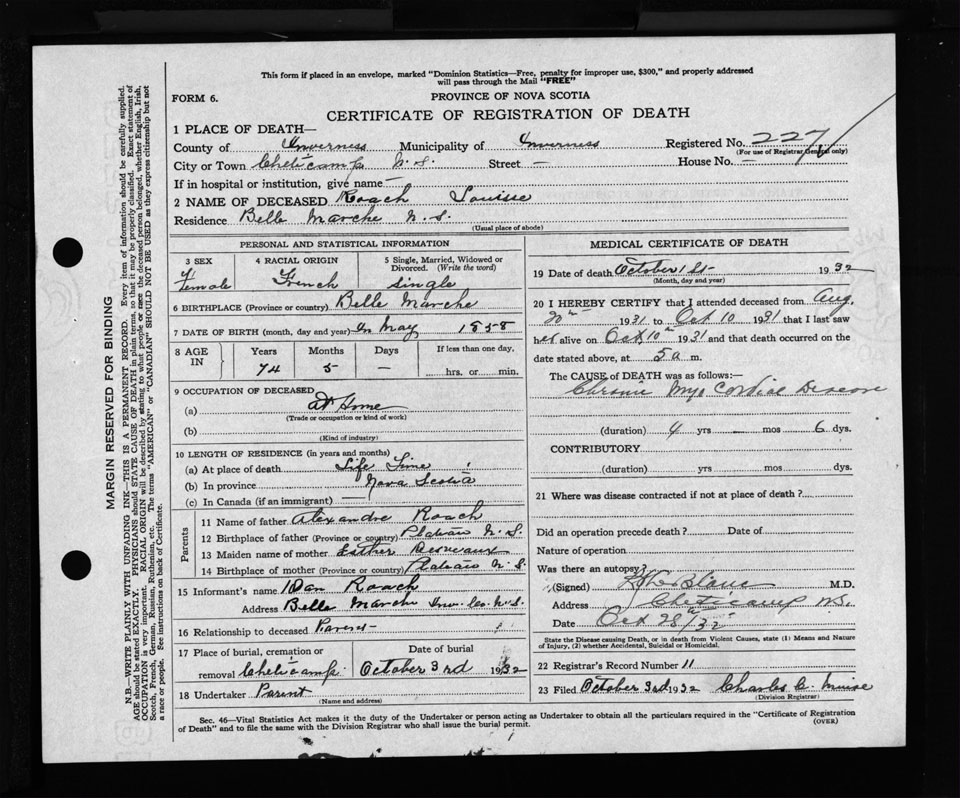 This form if placed in an envelope, marked "Dominion Statistics—Free, penalty for improper use, $300," and properly addressed
will pass through the Mail "FREE"
FORM 6.
PROVINCE OF NOVA SCOTIA
CERTIFICATE OF REGISTRATION OF DEATH
1 PLACE OF DEATH—
County of Inverness Municipality of Inverness Registered No. 227
(For use of Registrar General only)
City or Town Cheticamp N.S. Street — House No. —
If in hospital or institution, give name —
2 NAME OF DECEASED Roach Louisse
Residence Belle Marche N.S.
(Usual place of abode)
PERSONAL AND STATISTICAL INFORMATION
3 SEX 4 RACIAL ORIGIN 5 Single, Married, Widowed or
Divorced. (Write the word)
Female French single
6 BIRTHPLACE (Province or country) Belle Marche
7 DATE OF BIRTH (month, day and year) In May 1858
8 AGE IN Years Months Days If less than one day,
74 5 — hrs. or min.
9 OCCUPATION OF DECEASED
(a) at Home
(Trade or occupation or kind of work)
(b)
(Kind of industry)
10 LENGTH OF RESIDENCE (in years and months)
(a) At place of death Life Time
(b) In province Nova Scotia
(c) In Canada (if an immigrant) —
Parents
11 Name of father Alexandre Roach
12 Birthplace of father (Province or country) Plateau N.S.
13 Maiden name of mother Esther Desveaux
14 Birthplace of mother (Province or country) Plateau N.S.
15 Informant's name Dan Roach
Address Belle Marche Inv. Co. N.S.
16 Relationship to deceased
17 Place of burial, cremation or Date of burial
removal Cheticamp October 3rd 1932
18 Undertaker Parent
(Name and address)
MEDICAL CERTIFICATE OF DEATH
19 Date of death October 1st 1932
(Month, day and year)
20 I HEREBY CERTIFY that I attended deceased from Aug.
1931 to Oct 10 1931 that I last saw
her alive on Oct 10 1931 and that death occurred on the
date stated above, at 5 a m.
The CAUSE of DEATH was as follows:
Chronic Myo Cordiac Disease
(duration) 4 yrs — mos 6 dys.
CONTRIBUTORY
(duration) yrs. mos. dys.
21 Where was disease contracted if not at place of death?
Did an operation precede death? Date of
Nature of operation
Was there an autopsy?
(Signed) M.D.
Address Cheticamp N.S.
Date Oct 28th/32
State the Disease causing Death, or in death from Violent Causes, state (1) Means and Nature
of Injury, (2) whether Accidental, Suicidal or Homicidal.
22 Registrar's Record Number 11
23 Filed October 3rd 1932 Charles C.
(Division Registrar)
Sec. 46—Vital Statistics Act makes it the duty of the Undertaker or person acting as Undertaker to obtain all the particulars required in the "Certificate of Registration
of Death" and to file the same with the Division Registrar who shall issue the burial permit. (OVER)
MARGIN RESERVED FOR BINDING
N.B.—WRITE PLAINLY WITH UNFADING INK—THIS IS A PERMANENT RECORD. Every item of information should be carefully supplied.
AGE should be stated EXACTLY. PHYSICIANS should STATE CAUSE OF DEATH in plain terms, so that it may be properly classified. Exact statement of
OCCUPATION is very important. RACIAL ORIGIN will be described by stating to what people or race the deceased person belonged, whether English, Irish,
Scotch, French, German, Russian, Ruthenian, etc. The terms "AMERICAN" or "CANADIAN" SHOULD NOT BE USED as they express citizenship but not
a race or people. See instructions on back of Certificate.